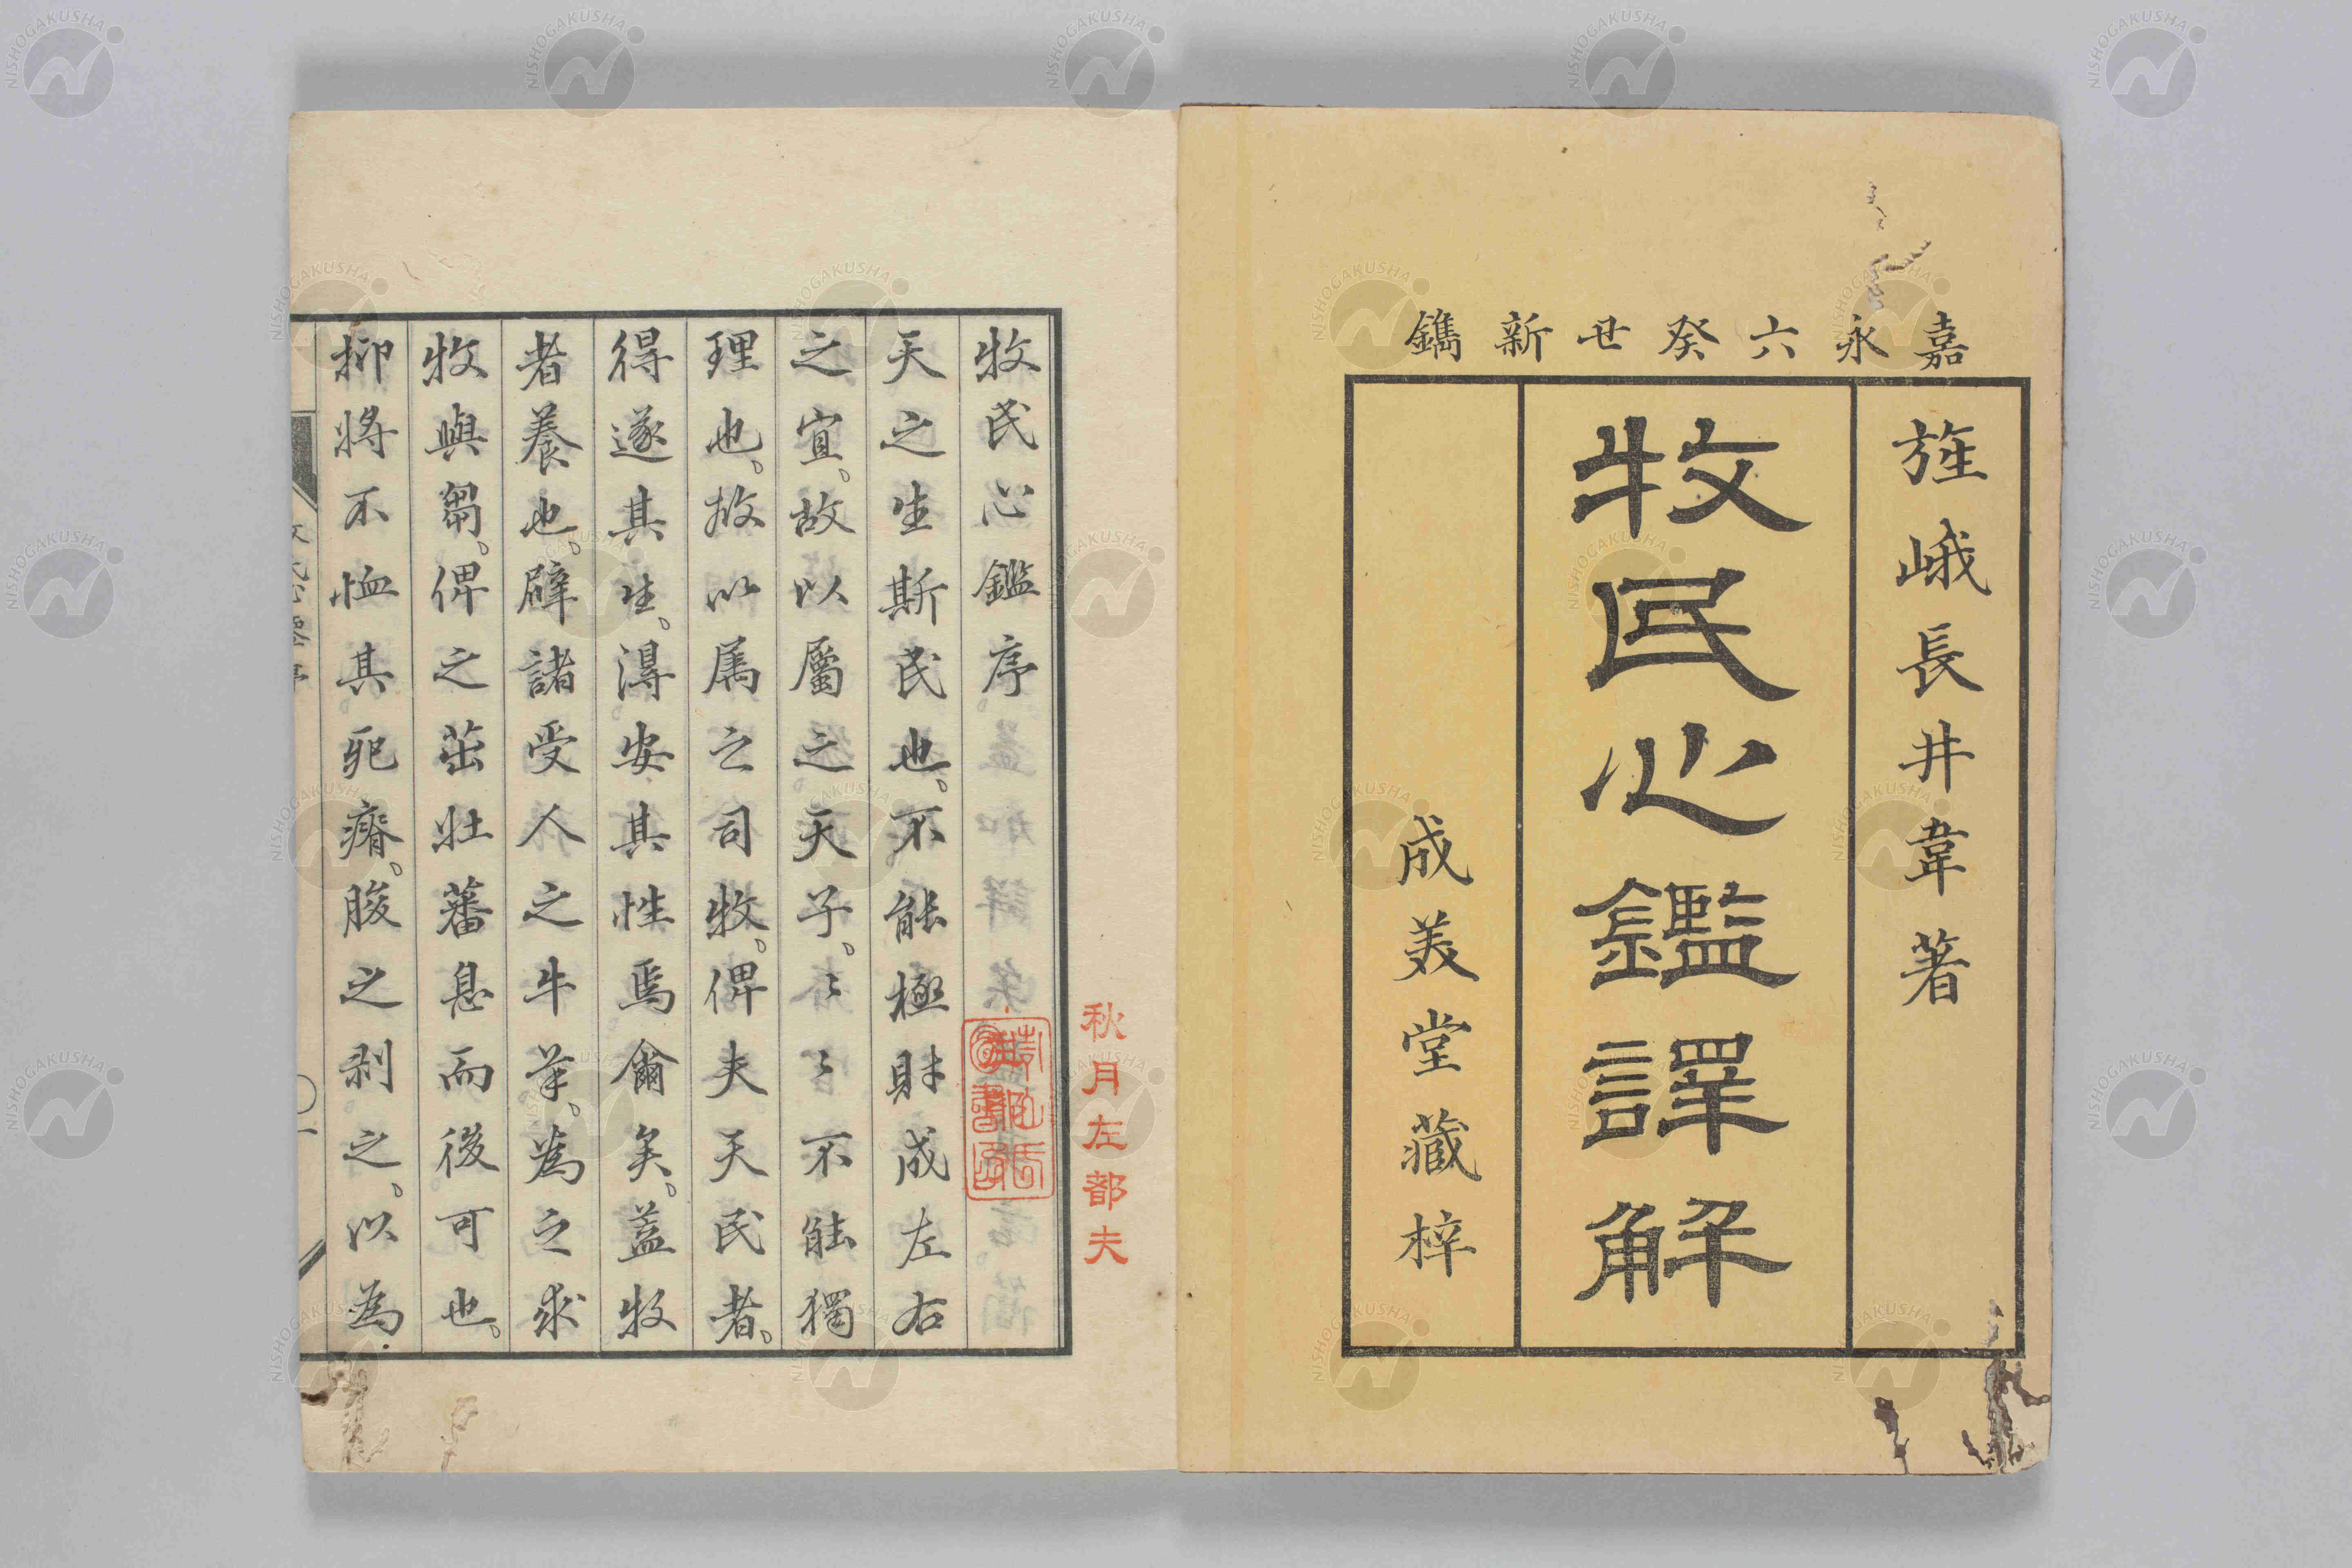 嘉永六癸丑新鐫
旌峨長井韋著
牧民心鑑譯解
成美堂藏梓
秋月左都夫
牧民心鑑序
天之生斯民也、不能極財成左右
之宜、故以屬之天子、〻〻不能獨
理也、故以属之司牧、俾夫天民者、
得遂其生、得安其性焉爾矣、蓋牧
者養也、辟諸受人之牛羊、為之求
牧與芻、俾之茁壮蕃息而後可也、
抑将不恤其死瘠、朘之剥之、以為
NISHOGAKUSHA